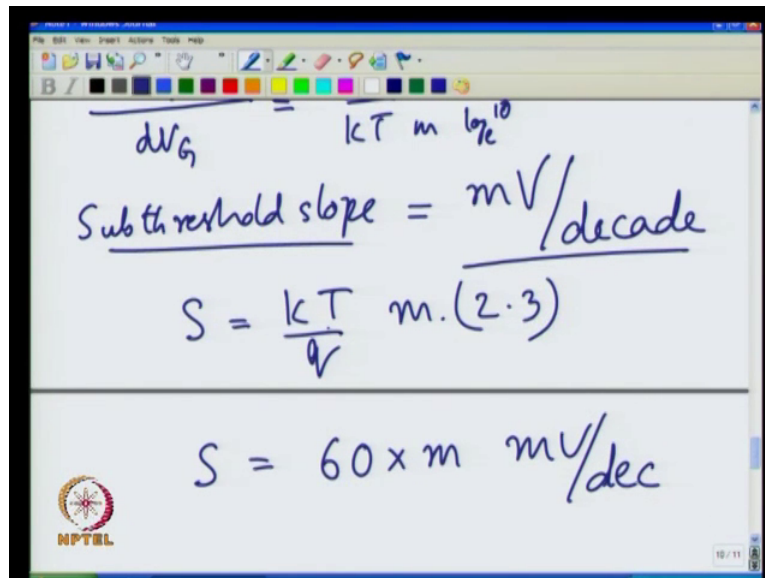 Note1 - Windows Journal
File Edit View Insert Actions Tools Help
B I
dV_G = kT m log_e 10
Subthreshold slope = mV/decade
S = kT/q m. (2.3)
S = 60 × m mV/dec
NPTEL
10 / 11